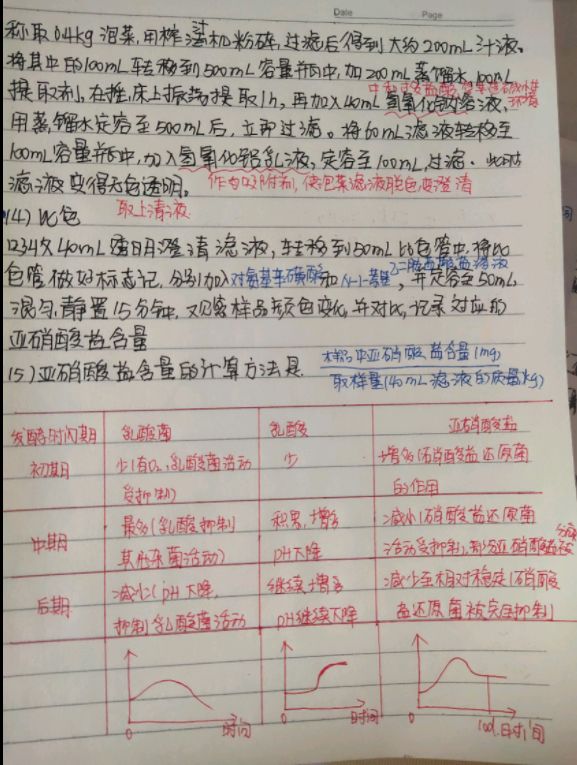 Date Page
称取0.4kg泡菜,用榨汁机粉碎,过滤后得到大约200mL汁液。
将其中的100mL转移到500mL容量瓶中,加200mL蒸馏水,100mL
提取剂,在摇床上振荡提取1h,再加入40mL氢氧化钠溶液,
用蒸馏水定容至500mL后,立即过滤。将60mL滤液转移至
100mL容量瓶中,加入氢氧化铝乳液,定容至100mL,过滤.此时
滤液变得无色透明。 作为吸附剂,使泡菜滤液脱色变澄清
(4)比色 取上清液
吸取40mL透明澄清滤液,转移到50mL比色管中,将比
色管做好标志记,分别加入对氨基苯磺酸加N-1-萘基乙二胺盐酸盐溶液,并定容至50mL
混匀,静置15分钟,观察样品颜色变化,并对比,记录对应的
亚硝酸盐含量
(5)亚硝酸盐含量的计算方法是 样品中亚硝酸盐含量(mg)
取样量(40mL滤液的质量kg)
发酵时间期 乳酸菌 乳酸 亚硝酸盐
初期 少(有O₂,乳酸菌活动受抑制) 少 增多(硝酸盐还原菌的作用)
中期 最多(乳酸抑制其他杂菌活动) 积累,增多pH下降 减少(硝酸盐还原菌活动受抑制,部分亚硝酸盐被分解
后期 减少(pH下降,抑制乳酸菌活动 继续增多pH继续下降 减少至相对稳定(硝酸盐还原菌被完全抑制)
0 时间 0 时间 0 10d 时间